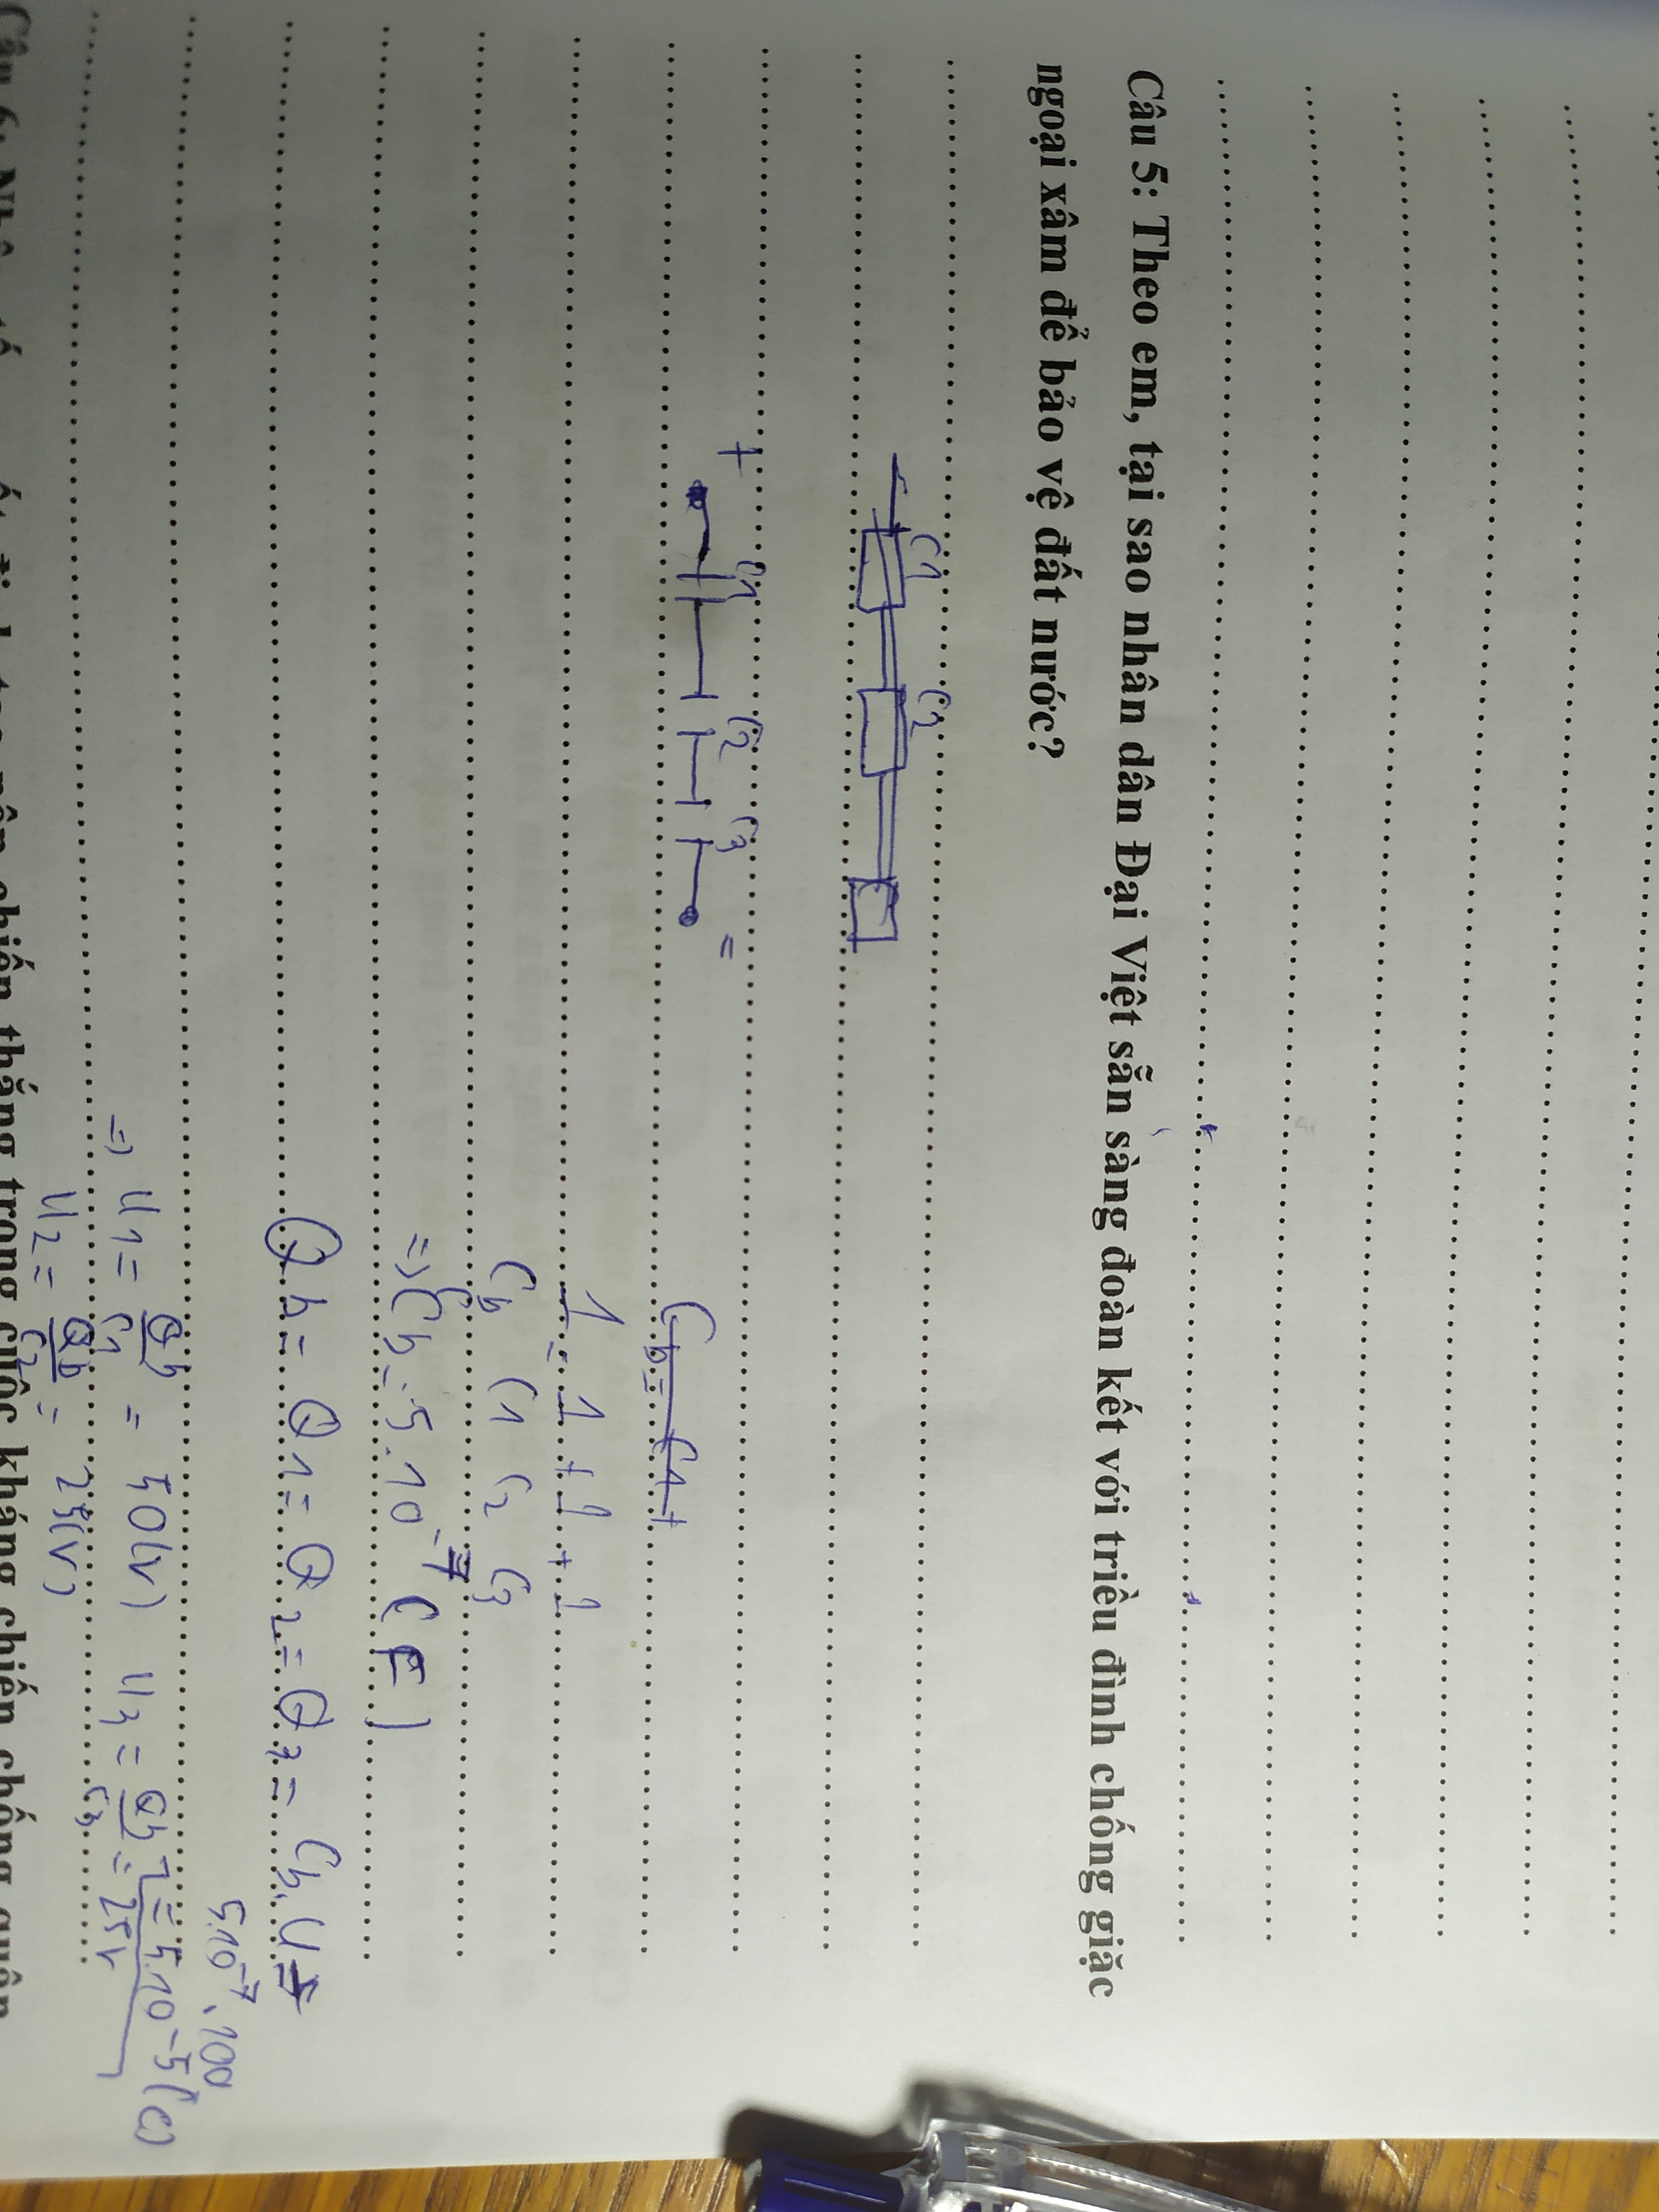 Câu 5: Theo em, tại sao nhân dân Đại Việt sẵn sàng đoàn kết với triều đình chống giặc
ngoại xâm để bảo vệ đất nước?
C1 C2
+ C1 C2 C3 =
Cb = C1 +
1 = 1 + 1 + 1
Cb C1 C2 C3
=> Cb = 5.10⁻⁷ (F)
Qb = Q1 = Q2 = Q3 = Cb.U =
5.10⁻⁷.100
= 5.10⁻⁵ (C)
=> U1 = Qb/C1 = 50(V) U3 = Qb/C3 = 25V
U2 = Qb/C2 = 25(V)
chiến thắng trong cuộc kháng chiến chống quân